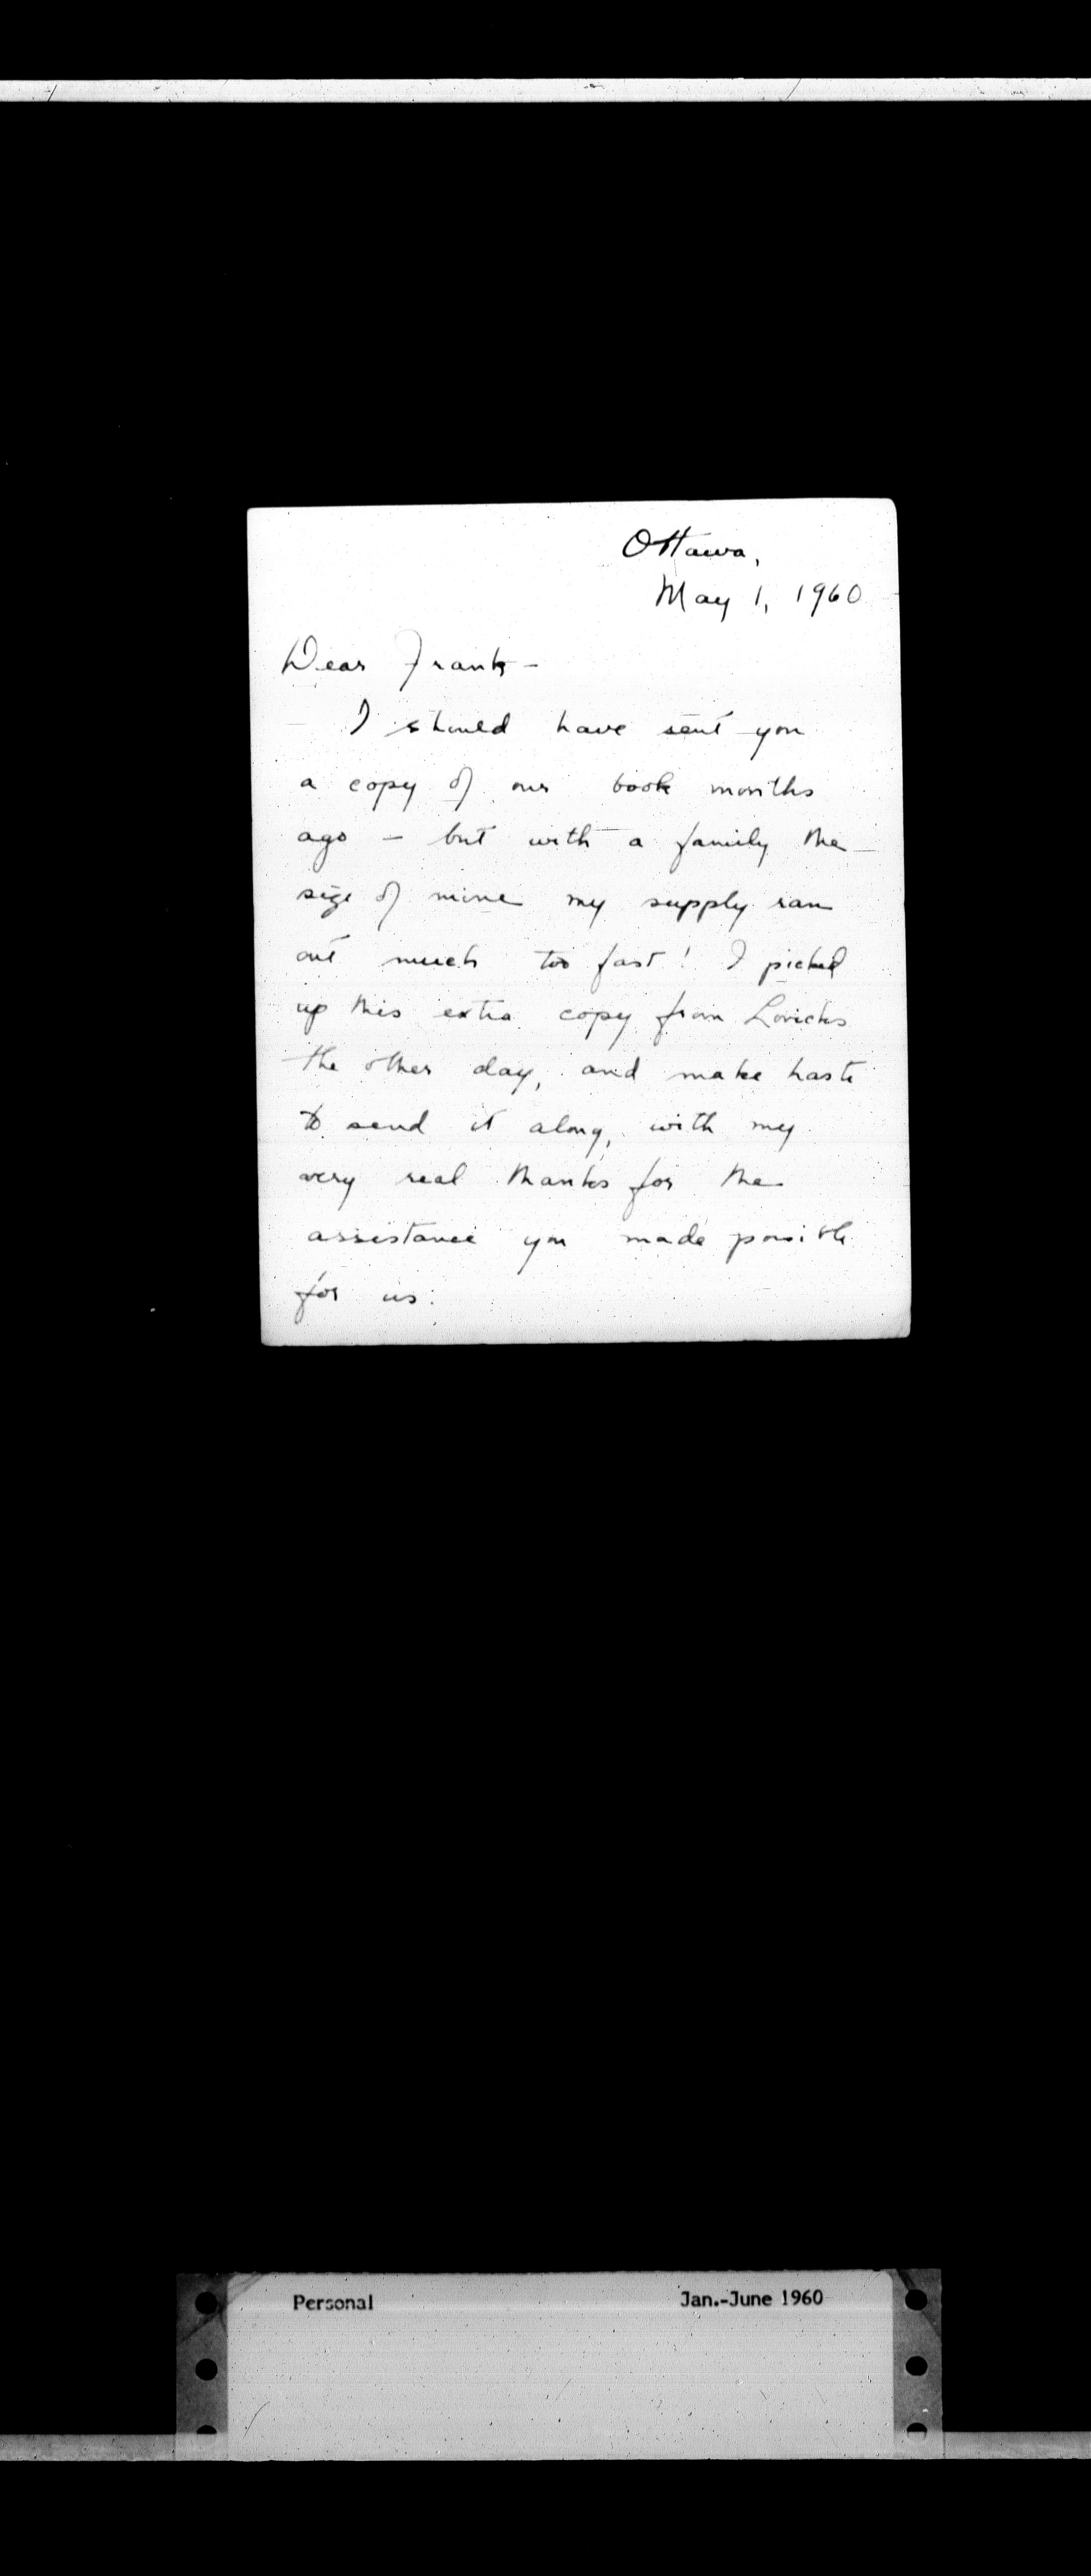 Ottawa,
May 1, 1960
Dear Frank -
I should have sent you
a copy of our book months
ago - but with a family the
size of mine my supply ran
out much too fast! I picked
up this extra copy from
the other day, and make haste
to send it along, with my
very real thanks for the
assistance you made possible
for us.
Personal Jan.-June 1960